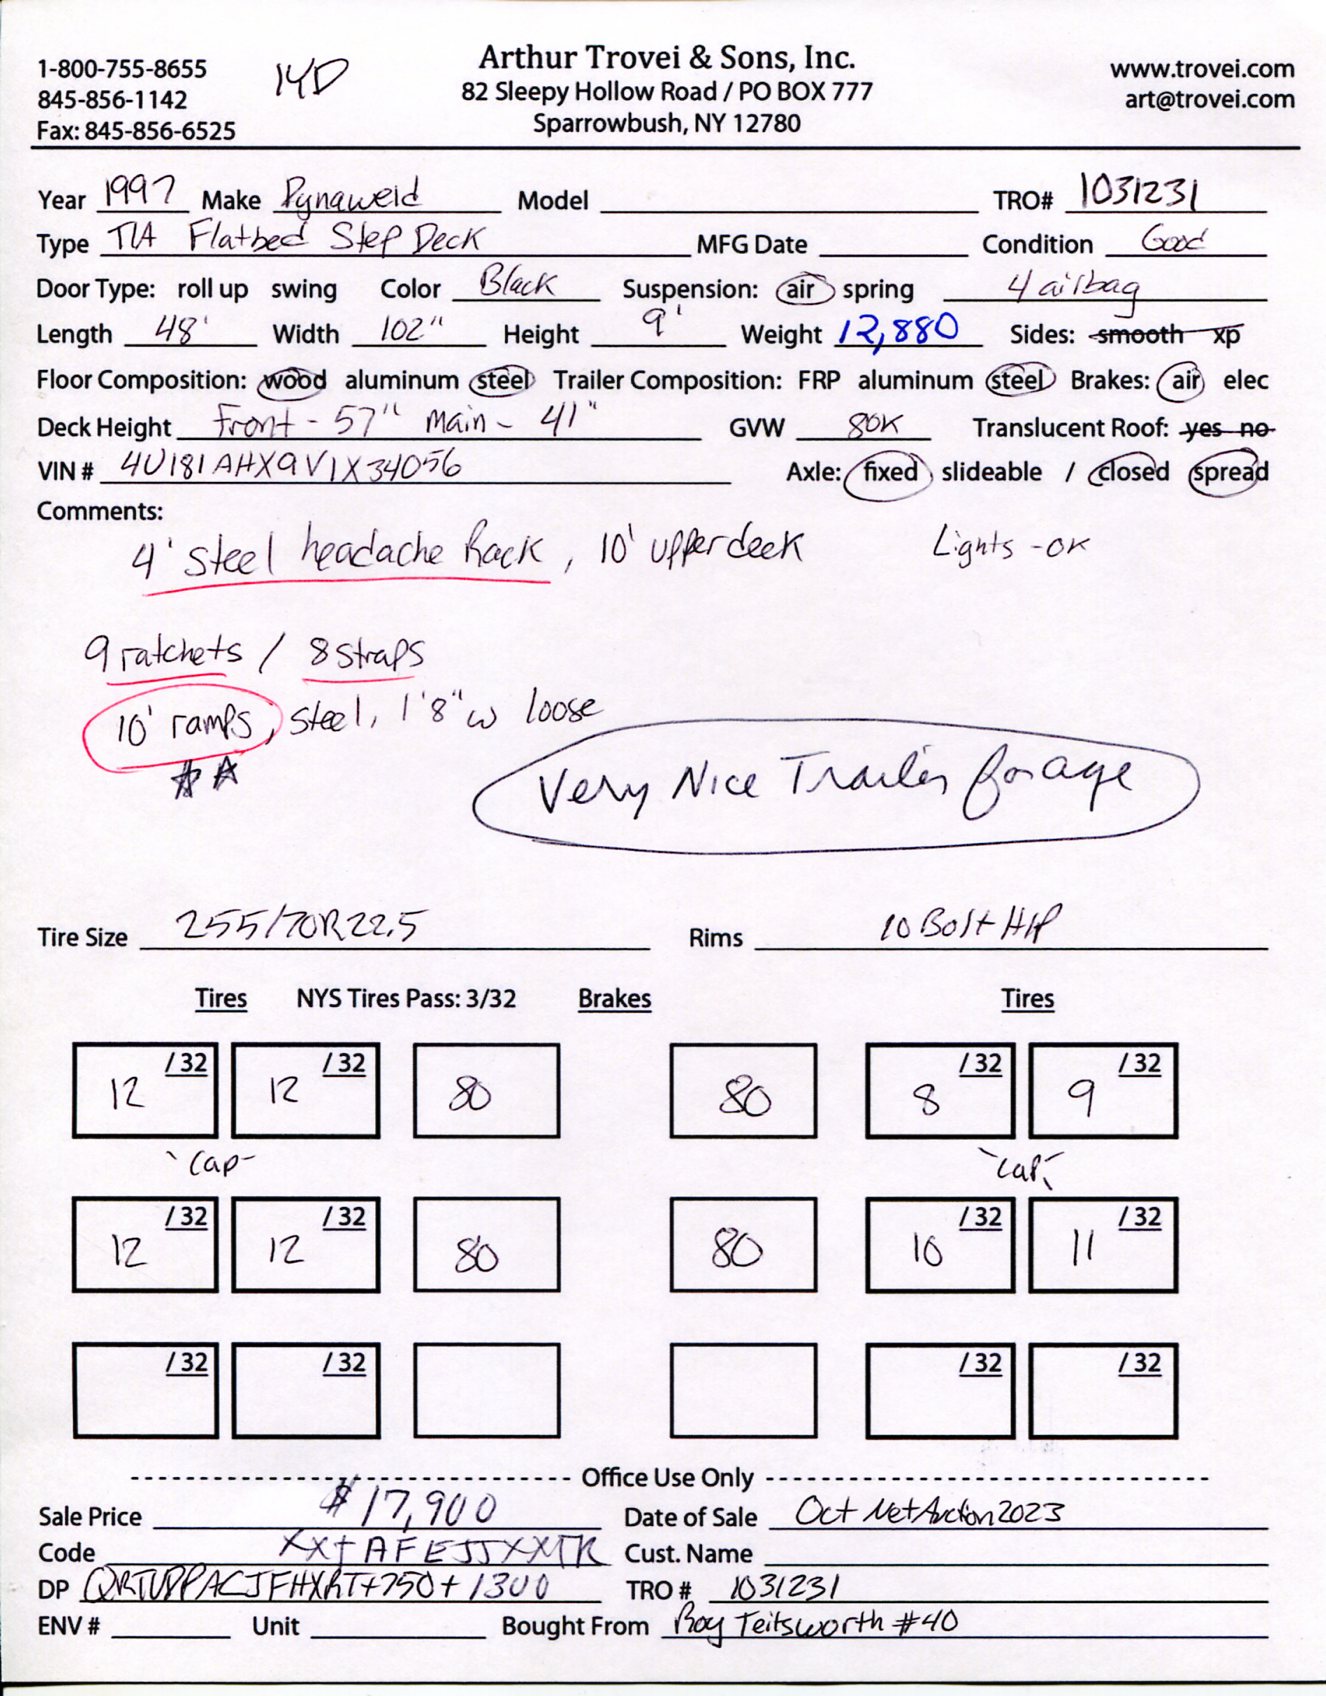 1-800-755-8655
845-856-1142
Fax: 845-856-6525
14D
Arthur Trovei & Sons, Inc.
82 Sleepy Hollow Road / PO BOX 777
Sparrowbush, NY 12780
www.trovei.com
art@trovei.com
Year 1997 Make Dynaweld Model TRO# 1031231
Type T/A Flatbed Step Deck MFG Date Condition Good
Door Type: roll up swing Color Black Suspension: air spring 4 airbag
Length 48' Width 102" Height 9' Weight 12,880 Sides: smooth xp
Floor Composition: wood aluminum steel Trailer Composition: FRP aluminum steel Brakes: air elec
Deck Height Front - 57" Main - 41" GVW 80K Translucent Roof: yes no
VIN # 4U181AHX9V1X34056 Axle: fixed slideable / closed spread
Comments:
4' Steel headache Rack, 10' upper deck Lights - OK
9 ratchets / 8 straps
10' ramps, steel, 1'8" w loose
Very Nice Trailer for age
Tire Size 255/70R22.5 Rims 10 Bolt H/P
Tires NYS Tires Pass: 3/32 Brakes Tires
12 /32 12 /32 80 80 8 /32 9 /32
"Cap" "Cap"
12 /32 12 /32 80 80 10 /32 11 /32
/32 /32 /32 /32
Office Use Only
Sale Price $17,900 Date of Sale Oct Net Auction 2023
Code XX+AFEJJXXTR Cust. Name
DP +750+1300 TRO # 1031231
ENV # Unit Bought From Roy Teitsworth #40